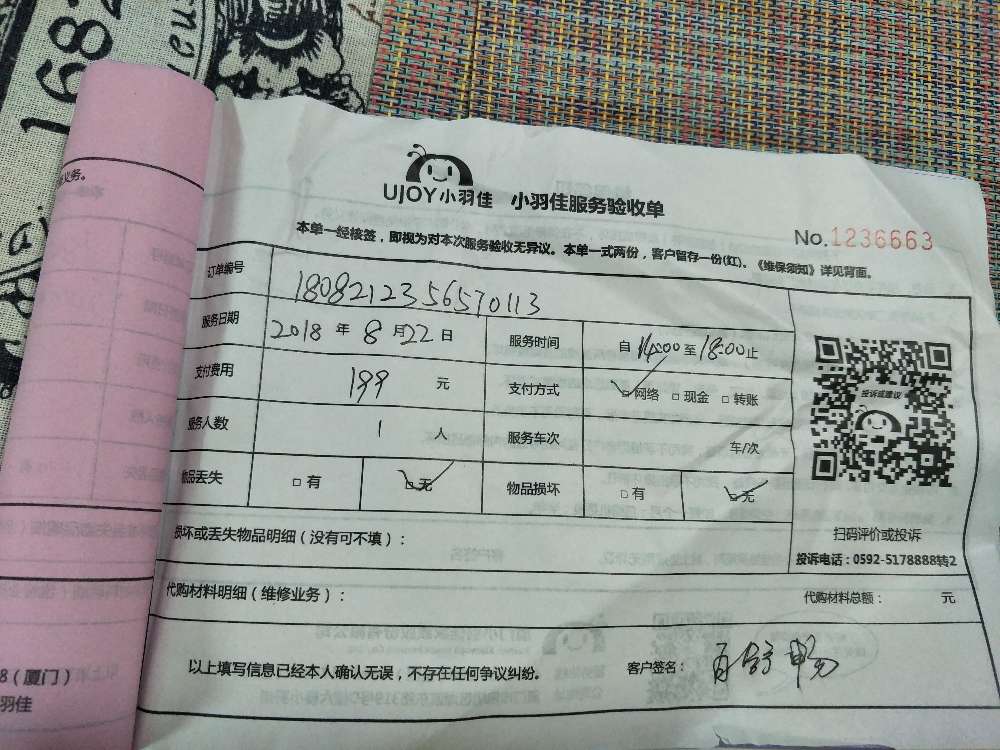 168
UJOY小羽佳 小羽佳服务验收单
No.1236663
本单一经核签，即视为对本次服务验收无异议。本单一式两份，客户留存一份(红)。《维保须知》详见背面。
订单编号 18082123 56570113
服务日期 2018 年 8 月 22 日 服务时间 自 14:00 至 18:00 止
支付费用 199 元 支付方式 ☑网络 □现金 □转账
服务人数 1 人 服务车次 车/次
物品丢失 □有 ☑无 物品损坏 □有 ☑无
投诉或建议
扫码评价或投诉
投诉电话：0592-5178888转2
损坏或丢失物品明细（没有可不填）：
代购材料明细（维修业务）： 代购材料总额： 元
以上填写信息已经本人确认无误，不存在任何争议纠纷。 客户签名：
义务。
8（厦门）
羽佳